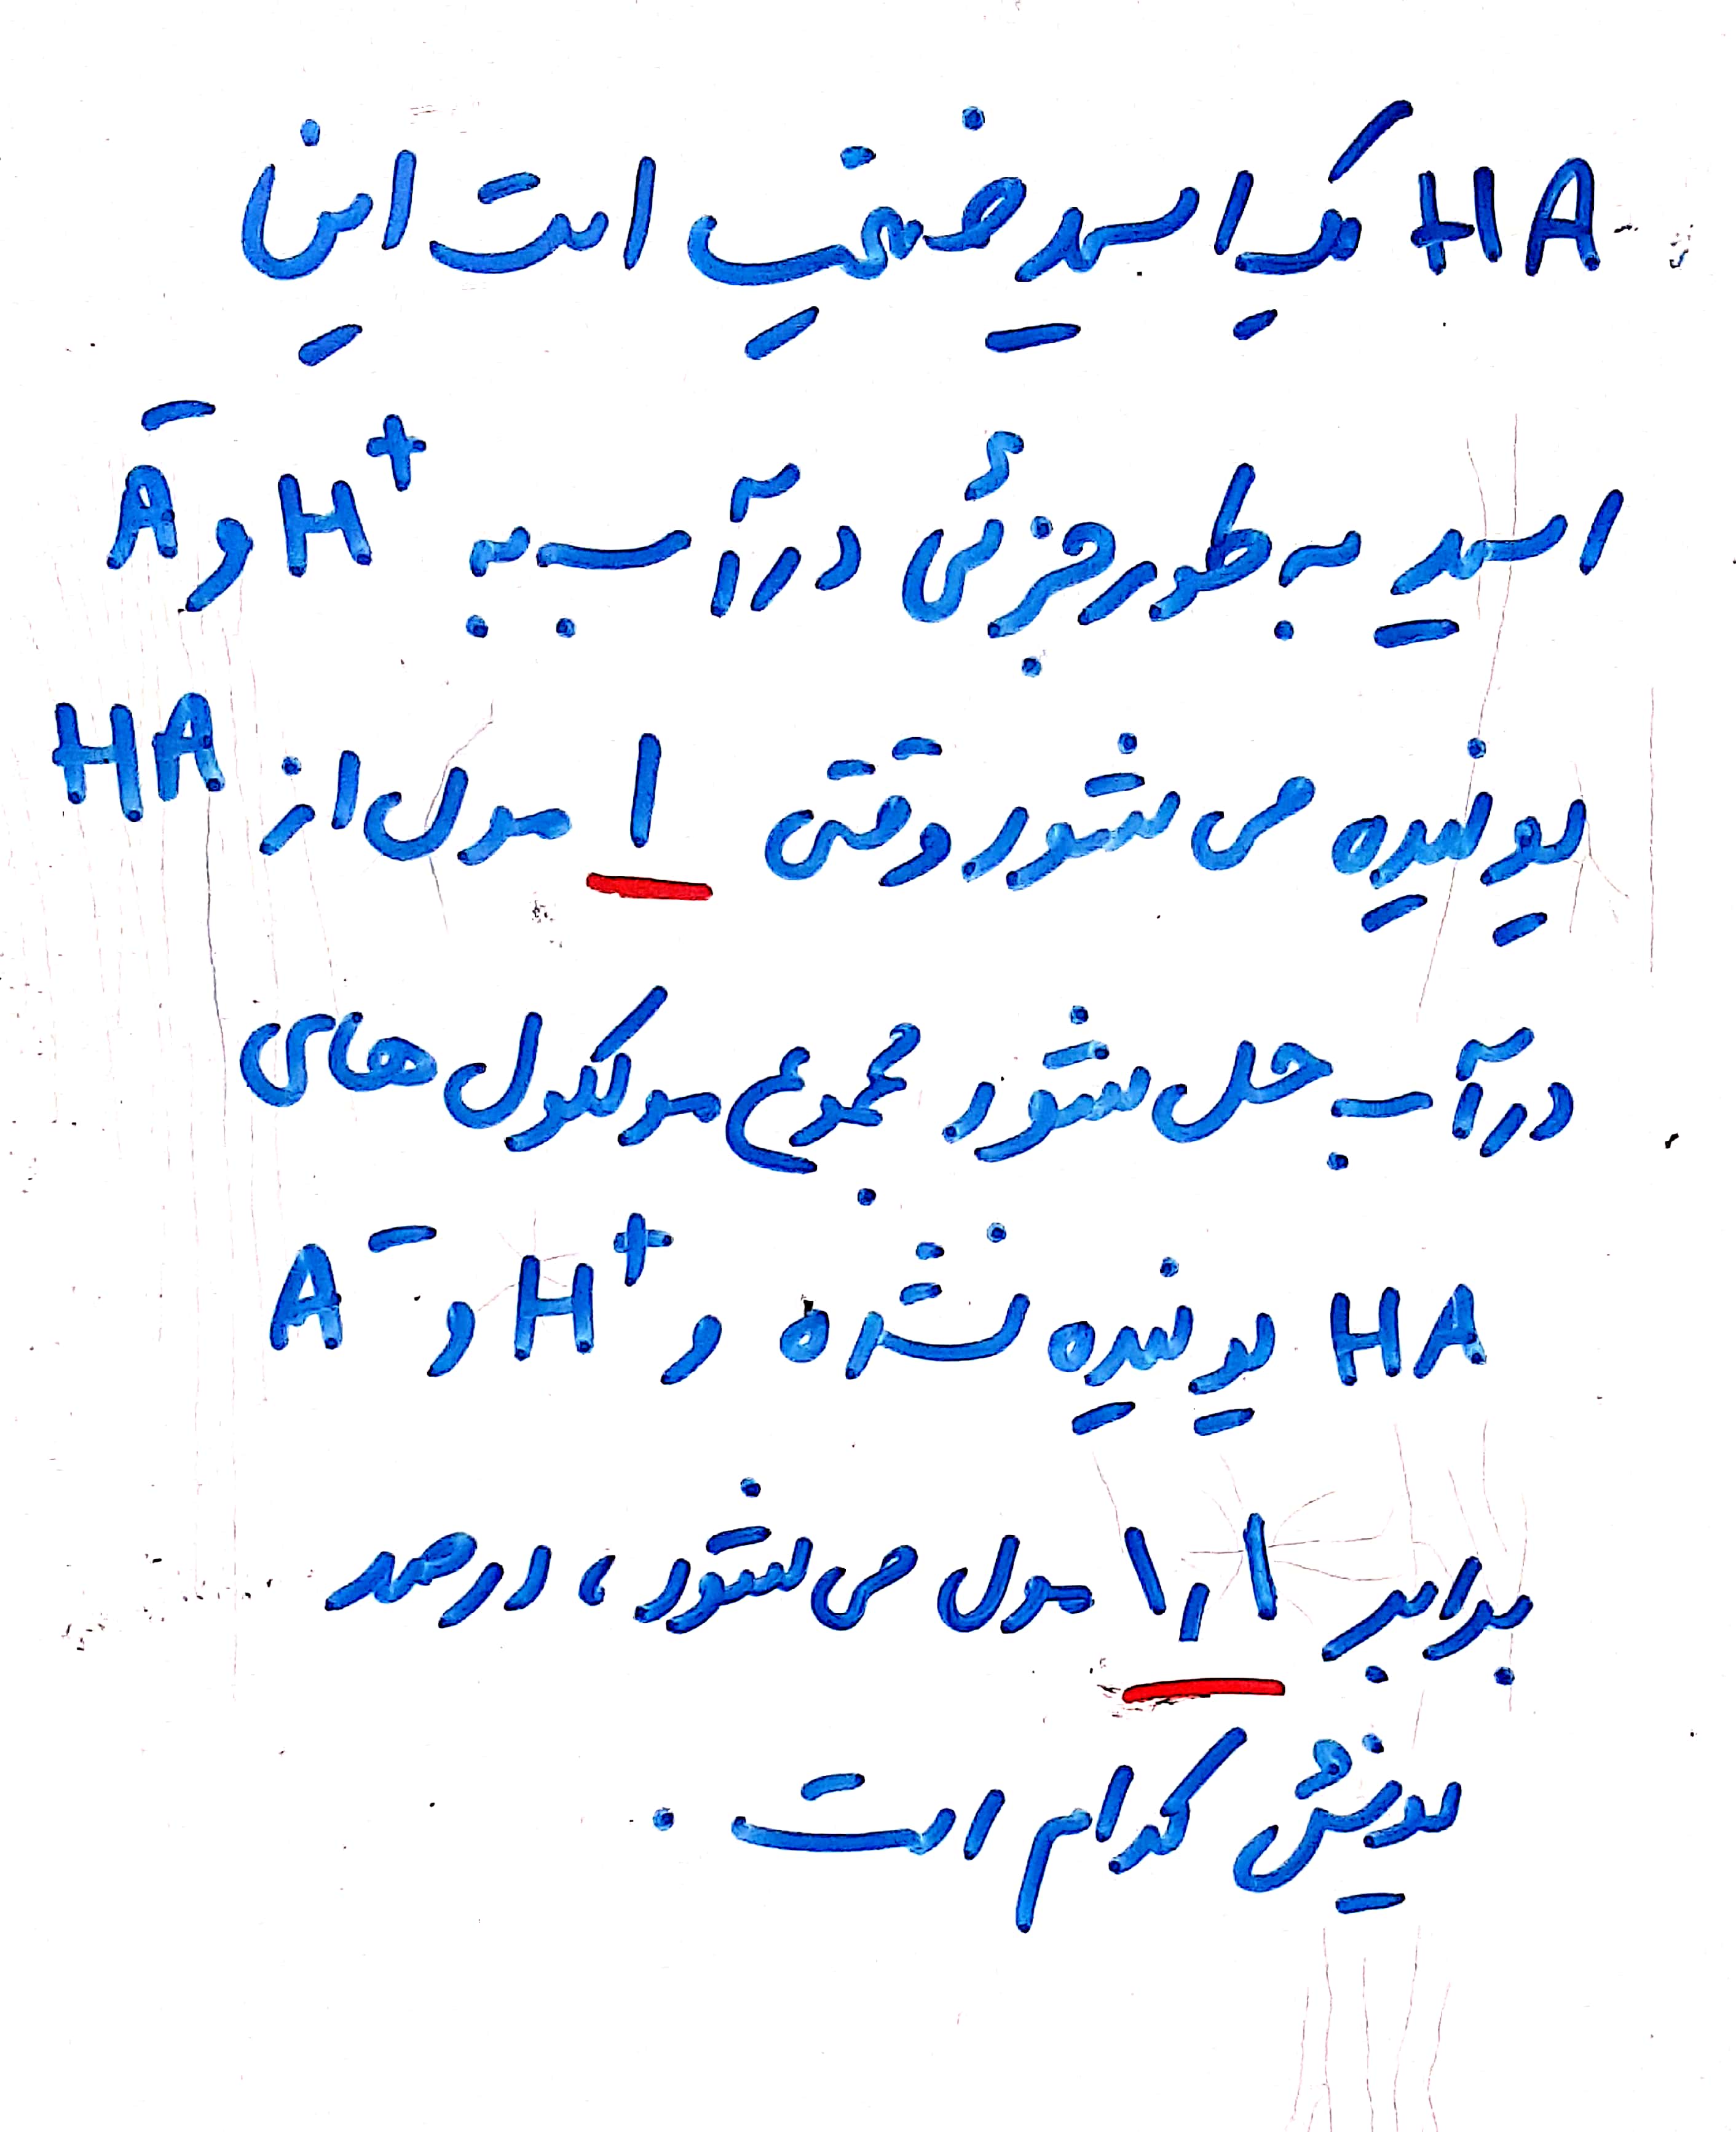 HA یک اسید ضعیف است این
اسید به طور جزئی در آب به H⁺ و A⁻
یونیده می شود وقتی ۱ مول از HA
در آب حل شود مجموع مولکول های
HA یونیده نشده و H⁺ و A⁻
برابر ۱٫۱ مول می شود، درصد
یونش کدام است .